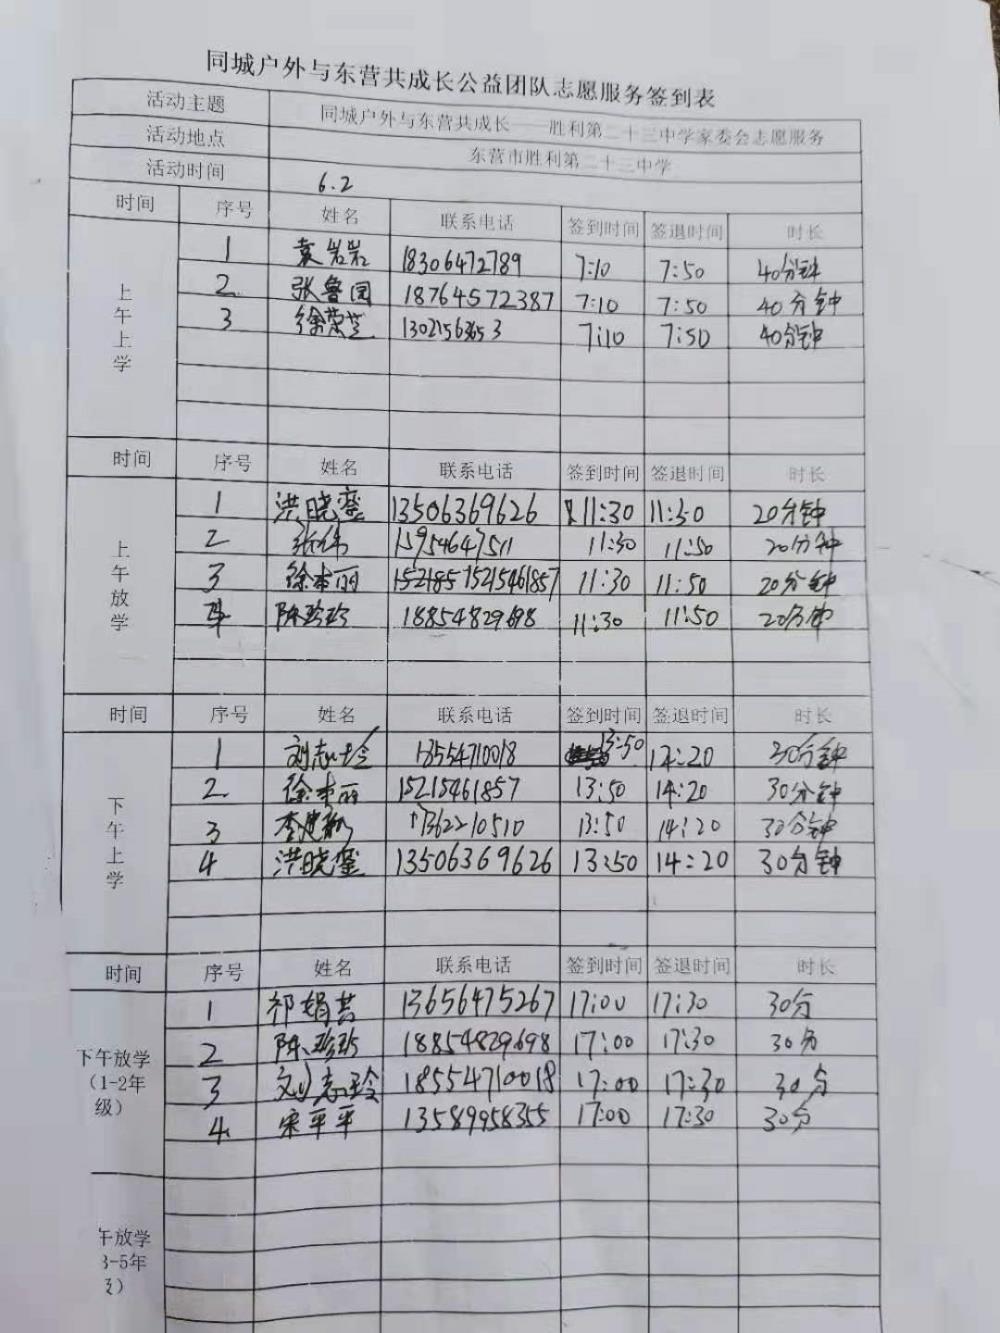 同城户外与东营共成长公益团队志愿服务签到表
活动主题 同城户外与东营共成长——胜利第二十三中学家委会志愿服务
活动地点 东营市胜利第二十三中学
活动时间 6.2
时间 序号 姓名 联系电话 签到时间 签退时间 时长
上午上学
1 袁岩岩 18306472789 7:10 7:50 40分钟
2 张鲁园 18764572387 7:10 7:50 40分钟
3 徐荣芝 13021563653 7:10 7:50 40分钟
时间 序号 姓名 联系电话 签到时间 签退时间 时长
上午放学
1 洪晓銮 13506369626 11:30 11:50 20分钟
2 张伟 15954647511 11:30 11:50 20分钟
3 徐本丽 1521857 15215461857 11:30 11:50 20分钟
4 陈珍珍 18854829698 11:30 11:50 20分钟
时间 序号 姓名 联系电话 签到时间 签退时间 时长
下午上学
1 刘志玲 18554710018 13:50 14:20 30分钟
2 徐本丽 15215461857 13:50 14:20 30分钟
3 李 13:50 14:20 30分钟
4 洪晓銮 13506369626 13:50 14:20 30分钟
时间 序号 姓名 联系电话 签到时间 签退时间 时长
下午放学
（1-2年
级）
1 祁娟芸 13656475267 17:00 17:30 30分
2 陈珍珍 18854829698 17:00 17:30 30分
3 刘志玲 18554710018 17:00 17:30 30分
4 宋平平 13589958355 17:00 17:30 30分
午放学
3-5年